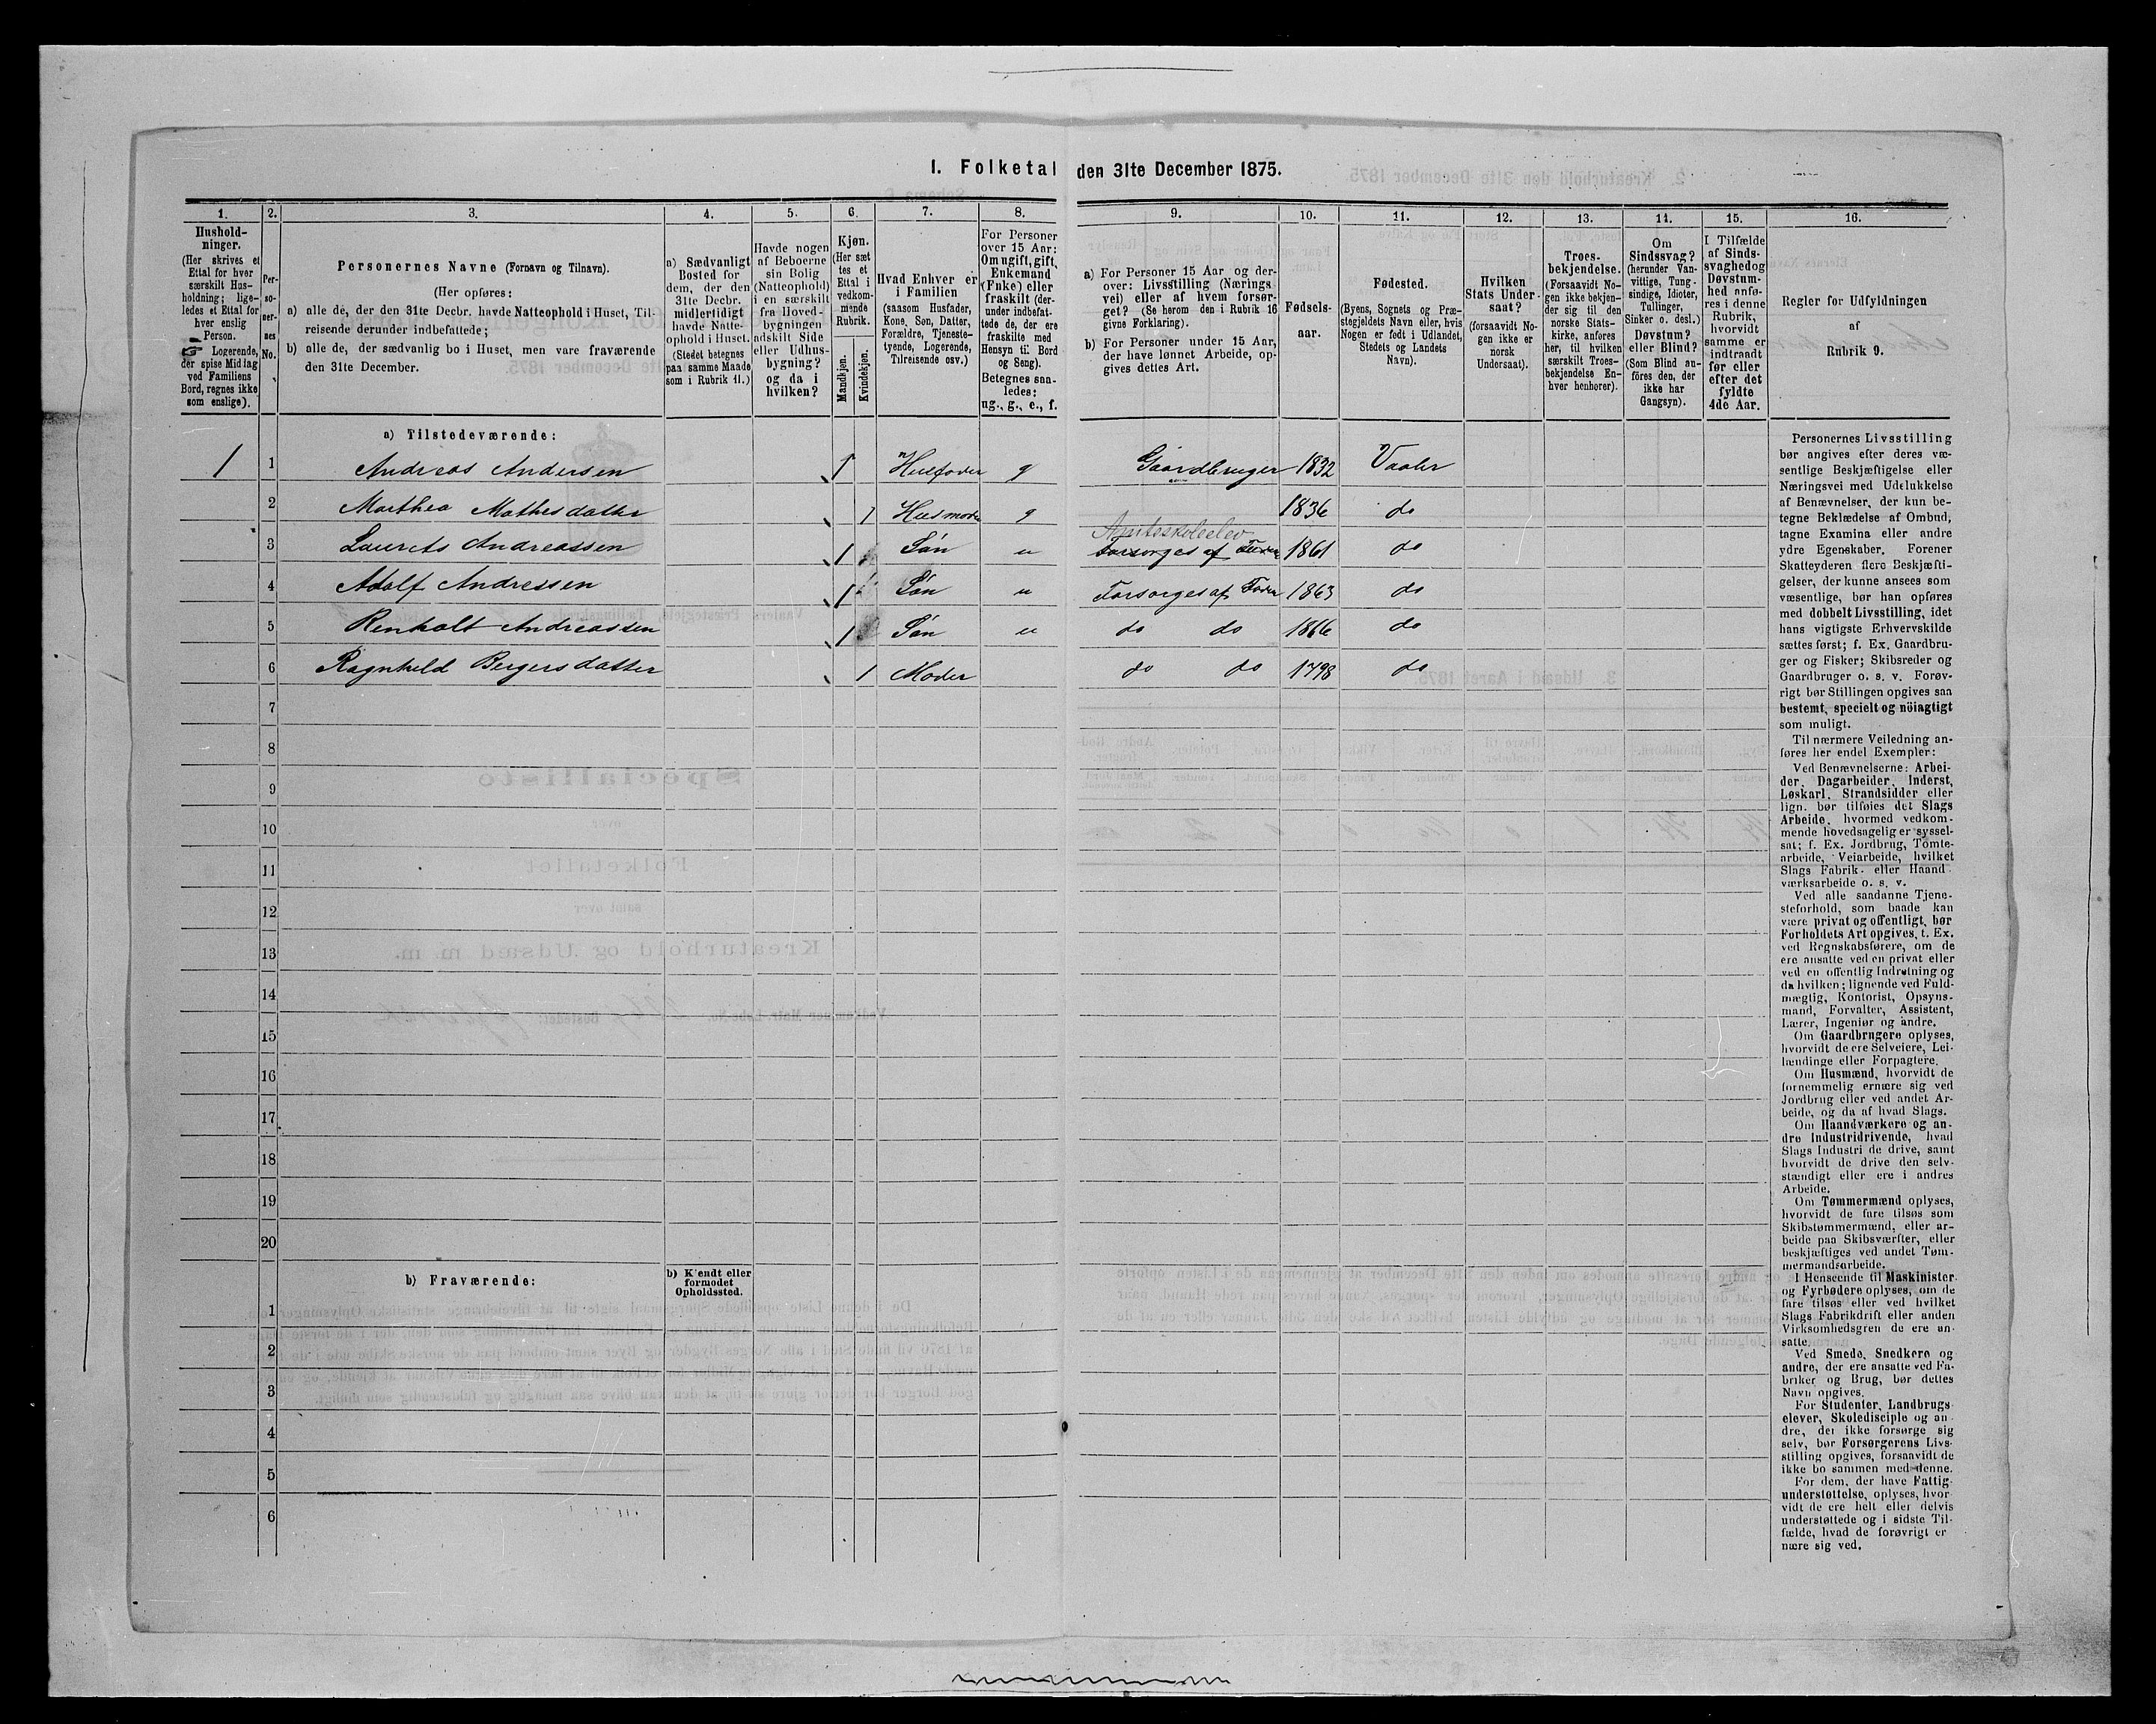 1. Folketal den 31te December 1875.
1.
Hushold-
ninger.
(Her skrives et
Ettal for hver
særskilt Hus-
holdning; lige-
ledes et Ettal for
hver enslig
Person.
☞ Logerende,
der spise Middag
ved Familiens
Bord, regnes ikke
som enslige).
2.
Per-
so-
ner-
nes
No.
3.
Personernes Navne (Fornavn og Tilnavn).
(Her opføres:
a) alle de, der den 31te Decbr. havde Natteophold i Huset, Til-
reisende derunder indbefattede;
b) alle de, der sædvanlig bo i Huset, men vare fraværende
den 31te December.
4.
a) Sædvanligt
Bosted for
dem, der den
31te Decbr.
midlertidigt
havde Natte-
ophold i Huset.
(Stedet betegnes
paa samme Maade
som i Rubrik 11.)
5.
Havde nogen
af Beboerne
sin Bolig
(Natteophold)
i en særskilt
fra Hoved-
bygningen
adskilt Side
eller Udhus-
bygning?
og da i
hvilken?
6.
Kjøn.
(Her sæt
tes et
Ettal i
vedkom-
mende
Rubrik.
Mandkjøn.
Kvindekjøn.
7.
Hvad Enhver er
i Familien
(saasom Husfader,
Kone, Søn, Datter,
Forældre, Tjeneste-
tyende, Logerende,
Tilreisende osv.)
8.
For Personer
over 15 Aar:
Om ugift, gift,
Enkemand
(Enke) eller
fraskilt (der-
under indbefat-
tede de, der ere
fraskilte med
Hensyn til Bord
og Seng).
Betegnes saa-
ledes:
ug., g., e., f.
9.
a) For Personer 15 Aar og der-
over: Livsstilling (Nærings
vei) eller af hvem forsør-
get? (Se herom den i Rubrik 16
givne Forklaring).
b) For Personer under 15 Aar,
der have lønnet Arbeide, op-
gives dettes Art.
10.
Fødsels-
aar.
11.
Fødested.
(Byens, Sognets og Præ-
stegjeldets Navn eller, hvis
Nogen er født i Udlandet,
Stedets og Landets
Navn).
12.
Hvilken
Stats Under-
saat?
(forsaavidt No-
gen ikke er
norsk
Undersaat).
13.
Troes-
bekjendelse.
(Forsaavidt No-
gen ikke bekjen-
der sig til den
norske Stats-
kirke, anføres
her, til hvilken
særskilt Troes-
bekjendelse En-
hver henhører).
14.
Om
Sindssvag?
(herunder Van-
vittige, Tung-
sindige, Idioter,
Tullinger,
Sinker o. desl.)
Døvstum?
eller Blind?
(Som Blind an-
føres den, der
ikke har
Gangsyn).
15.
I Tilfælde
af Sinds-
svaghed og
Døvstum-
hed anfø-
res i denne
Rubrik,
hvorvidt
samme er
indtraadt
før eller
efter det
fyldte
4de Aar.
16.
Regler for Udfyldningen
af
Rubrik 9.
a) Tilstedeværende:
1 1 Andreas Andersen 1 Husfader g Gaardbruger 1832 Vaaler
2 Marthea Mathisdatter 1 Husmoder g 1836 do
Amtsskoleelev
3 Laurets Andreassen 1 Søn u Forsørges af Fader 1861 do
4 Adolf Andressen 1 Søn u Forsørges af Fader 1863 do
5 Renholt Andreassen 1 Søn u do do 1866 do
6 Ragnhild Bergersdatter 1 Moder do do 1798 do
7
8
9
10
11
12
13
14
15
16
17
18
19
20
b) Fraværende:
b) Kjendt eller
formodet
Opholdssted.
1
2
3
4
5
6
Personernes Livsstilling
bør angives efter deres væ-
sentlige Beskjæftigelse eller
Næringsvei med Udelukkelse
af Benævnelser, der kun be-
tegne Beklædelse af Ombud,
tagne Examina eller andre
ydre Egenskaber. Forener
Skatteyderen flere Beskjæfti-
gelser, der kunne ansees som
væsentlige, bør han opføres
med dobbelt Livsstilling, idet
hans vigtigste Erhvervskilde
sættes først; f. Ex. Gaardbru-
ger og Fisker; Skibsreder og
Gaardbruger o. s. v. Forøv-
rigt bør Stillingen opgives saa
bestemt, specielt og nöiagtigt
som muligt.
Til nærmere Veiledning an-
føres her endel Exempler:
Ved Benævnelserne: Arbei-
der, Dagarbeider, Inderst,
Løskarl, Strandsidder eller
lign. bør tilføies det Slags
Arbeide, hvormed vedkom-
mende hovedsagelig er syssel-
sat; f. Ex. Jordbrug, Tomte-
arbeide, Veiarbeide, hvilket
Slags Fabrik- eller Haand
værksarbeide o. s. v.
Ved alle saadanne Tjene-
steforhold, som baade kan
være privat og offentligt, bør
Forholdets Art opgives, t. Ex.
ved Regnskabsførere, om de
ere ansatte ved en privat eller
ved en offentlig Indretning og
da hvilken; lignende ved Fuld-
mægtig, Kontorist, Opsyns-
mand, Forvalter, Assistent,
Lærer, Ingeniør og andre.
Om Gaardbrugere oplyses,
hvorvidt de ere Selveiere, Lei-
lændinge eller Forpagtere.
Om Husmænd, hvorvidt de
fornemmelig ernære sig ved
Jordbrug eller ved andet Ar-
beide, og da af hvad Slags.
Om Haandværkere og an-
dre Industridrivende, hvad
Slags Industri de drive, samt
hvorvidt de drive den selv-
stændigt eller ere i andres
Arbeide.
Om Tømmermænd oplyses,
hvorvidt de fare tilsøs som
Skibstømmermænd, eller ar-
beide paa Skibsværfter, eller
beskjæftiges ved andet Tøm-
mermandsarbeide.
I Henseende til Maskinister
og Fyrbødere oplyses, om de
fare tilsøs eller ved hvilket
Slags Fabrikdrift eller anden
Virksomhedsgren de ere an-
satte.
Ved Smede, Snedkere og
andre, der ere ansatte ved Fa-
briker og Brug, bør dettes
Navn opgives.
For Studenter, Landbrugs
elever, Skoledisciple og an-
dre, der ikke forsørge sig
selv, bør Forsørgerens Livs-
stilling opgives, forsaavidt de
ikke bo sammen med denne.
For dem, der have Fattig-
understøttelse, oplyses, hvor-
vidt de ere helt eller delvis
understøttede og i sidste Til-
fælde, hvad de forøvrigt er
nære sig ved.